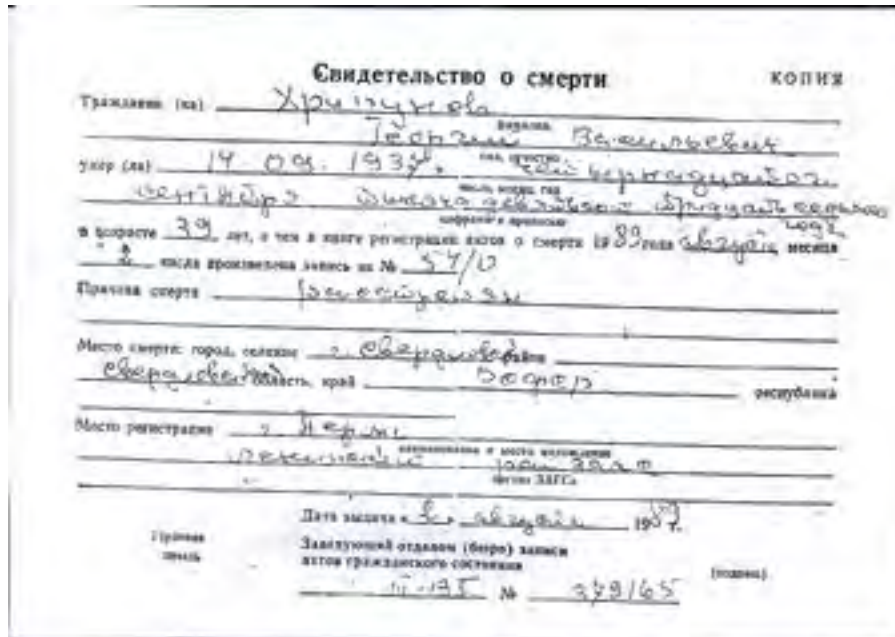 Свидетельство о смерти КОПИЯ
Гражданин (ка)
фамилия
Георгий Васильевич
имя, отчество
умер (ла) 14 09. 1937
число, месяц, год
сентября тысяча девятьсот тридцать седьмого
цифрами и прописью года
в возрасте 39 лет, о чем в книге регистрации актов о смерти 1989 года августа месяца
числа произведена запись за №
Причина смерти расстрелян
Место смерти: город, селение г. Свердловск район
Свердловская область, край РСФСР республика
Место регистрации г. Пермь
наименование и место нахождения
Ленинский рай ЗАГС
органа ЗАГСа
Дата выдачи августа 1989 г.
Гербовая
печать
Заведующий отделом (бюро) записи
актов гражданского состояния
(подпись)
№ 379165